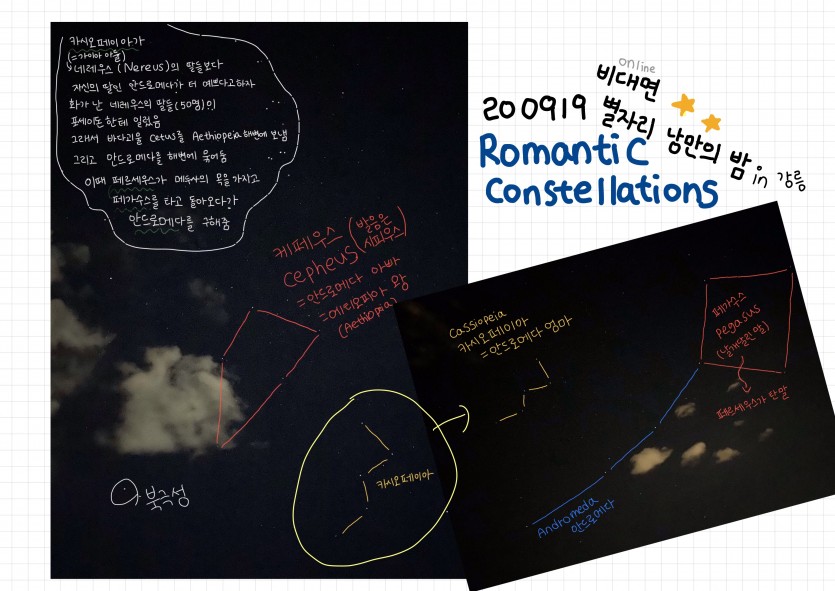 카시오페이아가
(=가이아 아들)
↳네레우스 (Nereus)의 딸들보다
자신의 딸인 안드로메다가 더 예쁘다고하자
화가 난 네레우스의 딸들(50명)이
포세이돈한테 일렀음
그래서 바다괴물 Cetus를 Aethiopeia해변에 보냄
그리고 안드로메다를 해변에 묶어둠
이때 페르세우스가 메두사의 목을 가지고
페가수스를 타고 돌아오다가
안드로메다를 구해줌
online
비대면
200919 별자리 낭만의 밤 in 강릉
Romantic
Constellations
케페우스 (발음은
cepheus 시피우스)
=안드로메다 아빠
=에티오피아 왕
(Aethiopia)
Cassiopeia
카시오페이아
=안드로메다 엄마
페가수스
pegasus
(날개달린 말)
페르세우스가 탄 말
카시오페이아
북극성
Andromeda
안드로메다